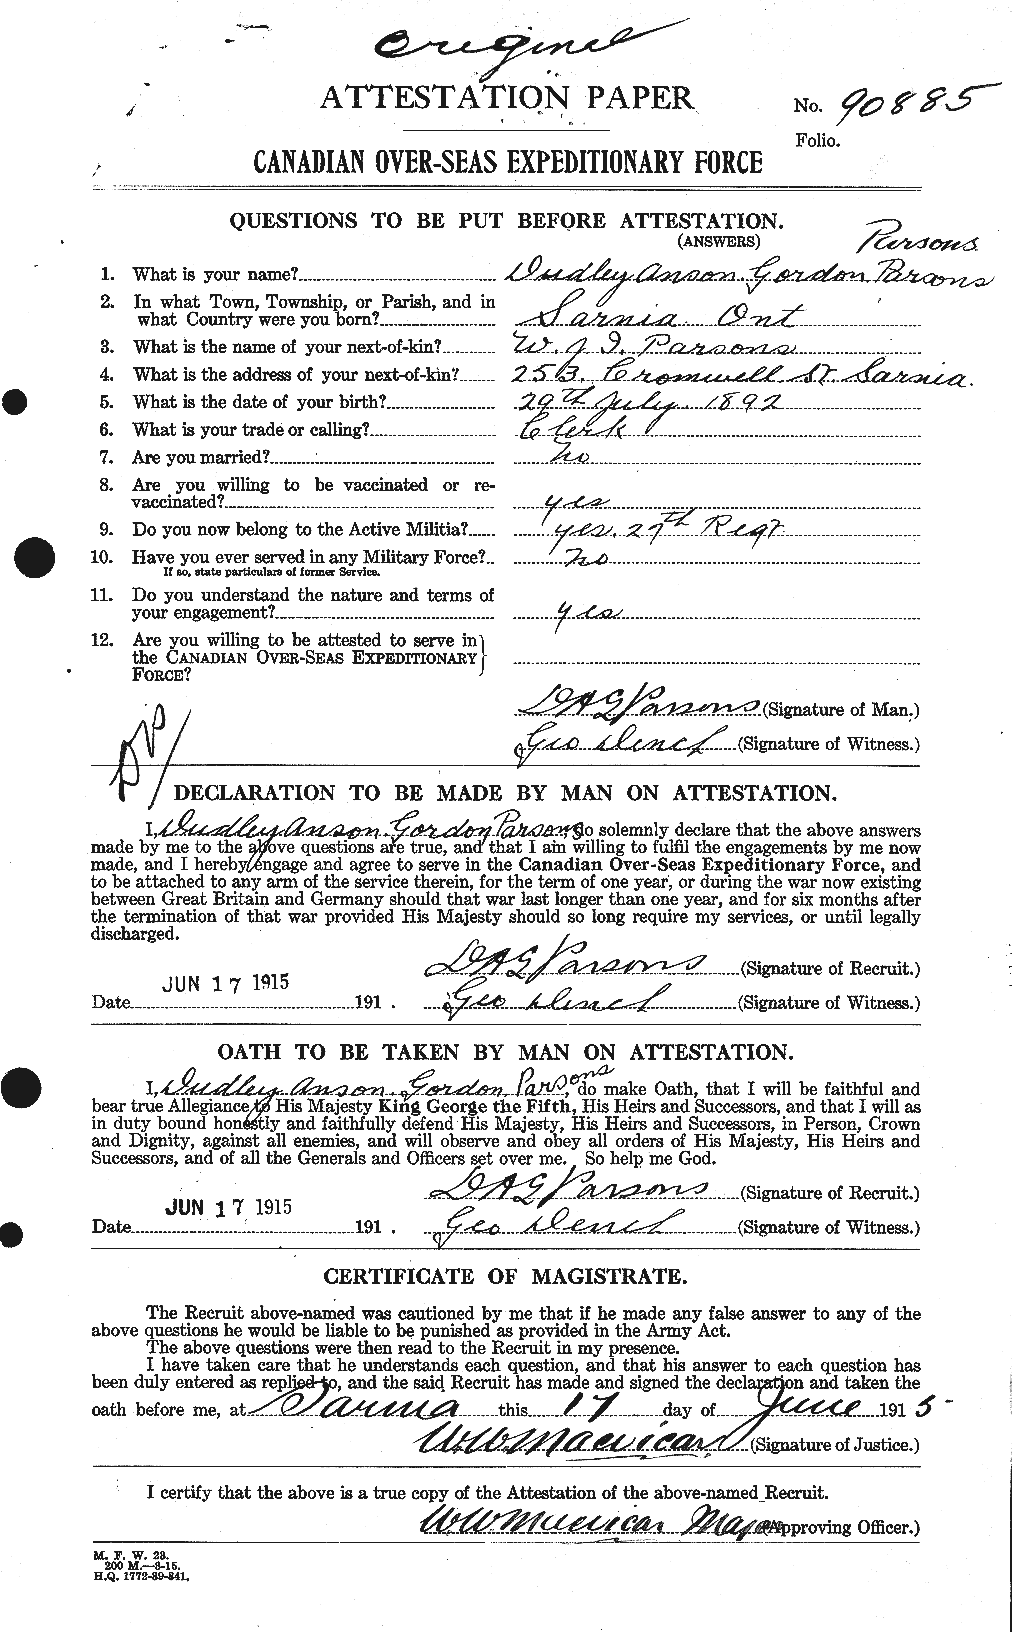 Original
ATTESTATION PAPER
No. 90885
Folio.
CANADIAN OVER-SEAS EXPEDITIONARY FORCE
QUESTIONS TO BE PUT BEFORE ATTESTATION.
(ANSWERS)
Parsons
1. What is your name? Dudley Anson Gordon Parsons
2. In what Town, Township, or Parish, and in
what Country were you born? Sarnia Ont
3. What is the name of your next-of-kin? W. J. I. Parsons
4. What is the address of your next-of-kin? 253. Cromwell St. Sarnia.
5. What is the date of your birth? 29th July 1892
6. What is your trade or calling? Clerk
7. Are you married? No
8. Are you willing to be vaccinated or re-
vaccinated? yes
9. Do you now belong to the Active Militia? yes. 27th Regt
10. Have you ever served in any Military Force? No
If so, state particulars of former Service.
11. Do you understand the nature and terms of
your engagement? yes
12. Are you willing to be attested to serve in
the CANADIAN OVER-SEAS EXPEDITIONARY
FORCE?
D A G Parsons (Signature of Man.)
Geo Dench (Signature of Witness.)
DECLARATION TO BE MADE BY MAN ON ATTESTATION.
I, Dudley Anson Gordon Parsons, do solemnly declare that the above answers
made by me to the above questions are true, and that I am willing to fulfil the engagements by me now
made, and I hereby engage and agree to serve in the Canadian Over-Seas Expeditionary Force, and
to be attached to any arm of the service therein, for the term of one year, or during the war now existing
between Great Britain and Germany should that war last longer than one year, and for six months after
the termination of that war provided His Majesty should so long require my services, or until legally
discharged.
D A G Parsons (Signature of Recruit.)
JUN 17 1915
Date 191 . Geo Dench (Signature of Witness.)
OATH TO BE TAKEN BY MAN ON ATTESTATION.
I, Dudley Anson Gordon Parsons, do make Oath, that I will be faithful and
bear true Allegiance to His Majesty King George the Fifth, His Heirs and Successors, and that I will as
in duty bound honestly and faithfully defend His Majesty, His Heirs and Successors, in Person, Crown
and Dignity, against all enemies, and will observe and obey all orders of His Majesty, His Heirs and
Successors, and of all the Generals and Officers set over me. So help me God.
D A G Parsons (Signature of Recruit.)
JUN 17 1915
Date 191 . Geo Dench (Signature of Witness.)
CERTIFICATE OF MAGISTRATE.
The Recruit above-named was cautioned by me that if he made any false answer to any of the
above questions he would be liable to be punished as provided in the Army Act.
The above questions were then read to the Recruit in my presence.
I have taken care that he understands each question, and that his answer to each question has
been duly entered as replied to, and the said Recruit has made and signed the declaration and taken the
oath before me, at Sarnia this 17 day of June 1915
W.W. Macvicar (Signature of Justice.)
I certify that the above is a true copy of the Attestation of the above-named Recruit.
W W Macvicar Major (Approving Officer.)
M. F. W. 23.
200 M.—3-15.
H.Q. 1772-39-841.